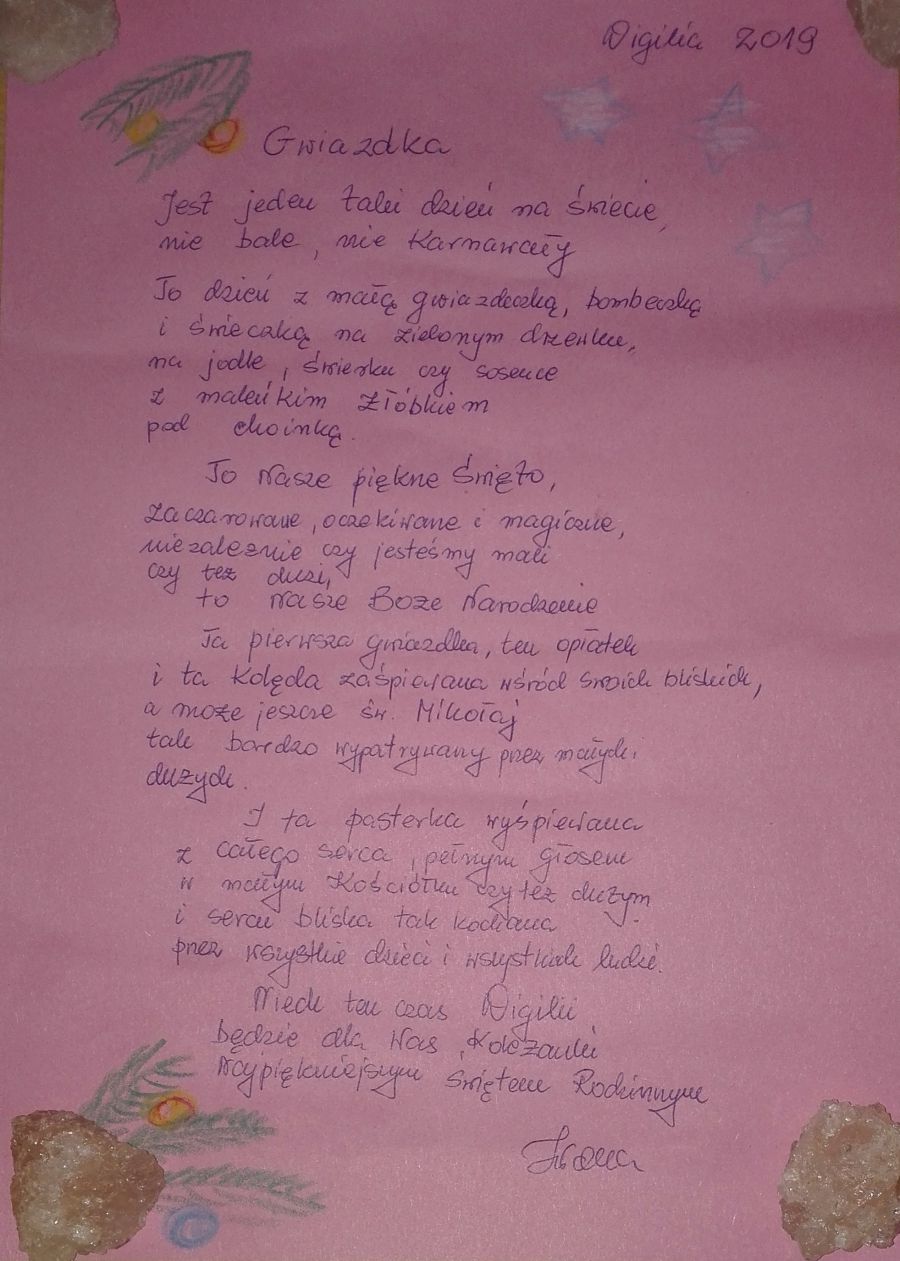 Wigilia 2019
Gwiazdka
Jest jeden taki dzień na świecie,
nie bale, nie Karnawały
To dzień z małą gwiazdeczką, bombeczką
i świeczką na zielonym drzewku,
na jodle, świerku czy sosence
z maleńkim żłóbkiem
pod choinką.
To Nasze piękne Święto,
zaczarowane, oczekiwane i magiczne,
niezależnie czy jesteśmy mali
czy też duzi,
to Nasze Boże Narodzenie
Ta pierwsza gwiazdka, ten opłatek
i ta kolęda zaśpiewana wśród swoich bliskich,
a może jeszcze św. Mikołaj
tak bardzo wypatrywany przez małych i
dużych.
I ta pasterka wyśpiewana
z całego serca, pełnym głosem
w małym Kościółku czy też dużym
i sercu bliska tak kochana
przez wszystkie dzieci i wszystkich ludzi.
Niech ten czas Wigilii
będzie dla Was, Koleżanki
Najpiękniejszym świętem Rodzinnym